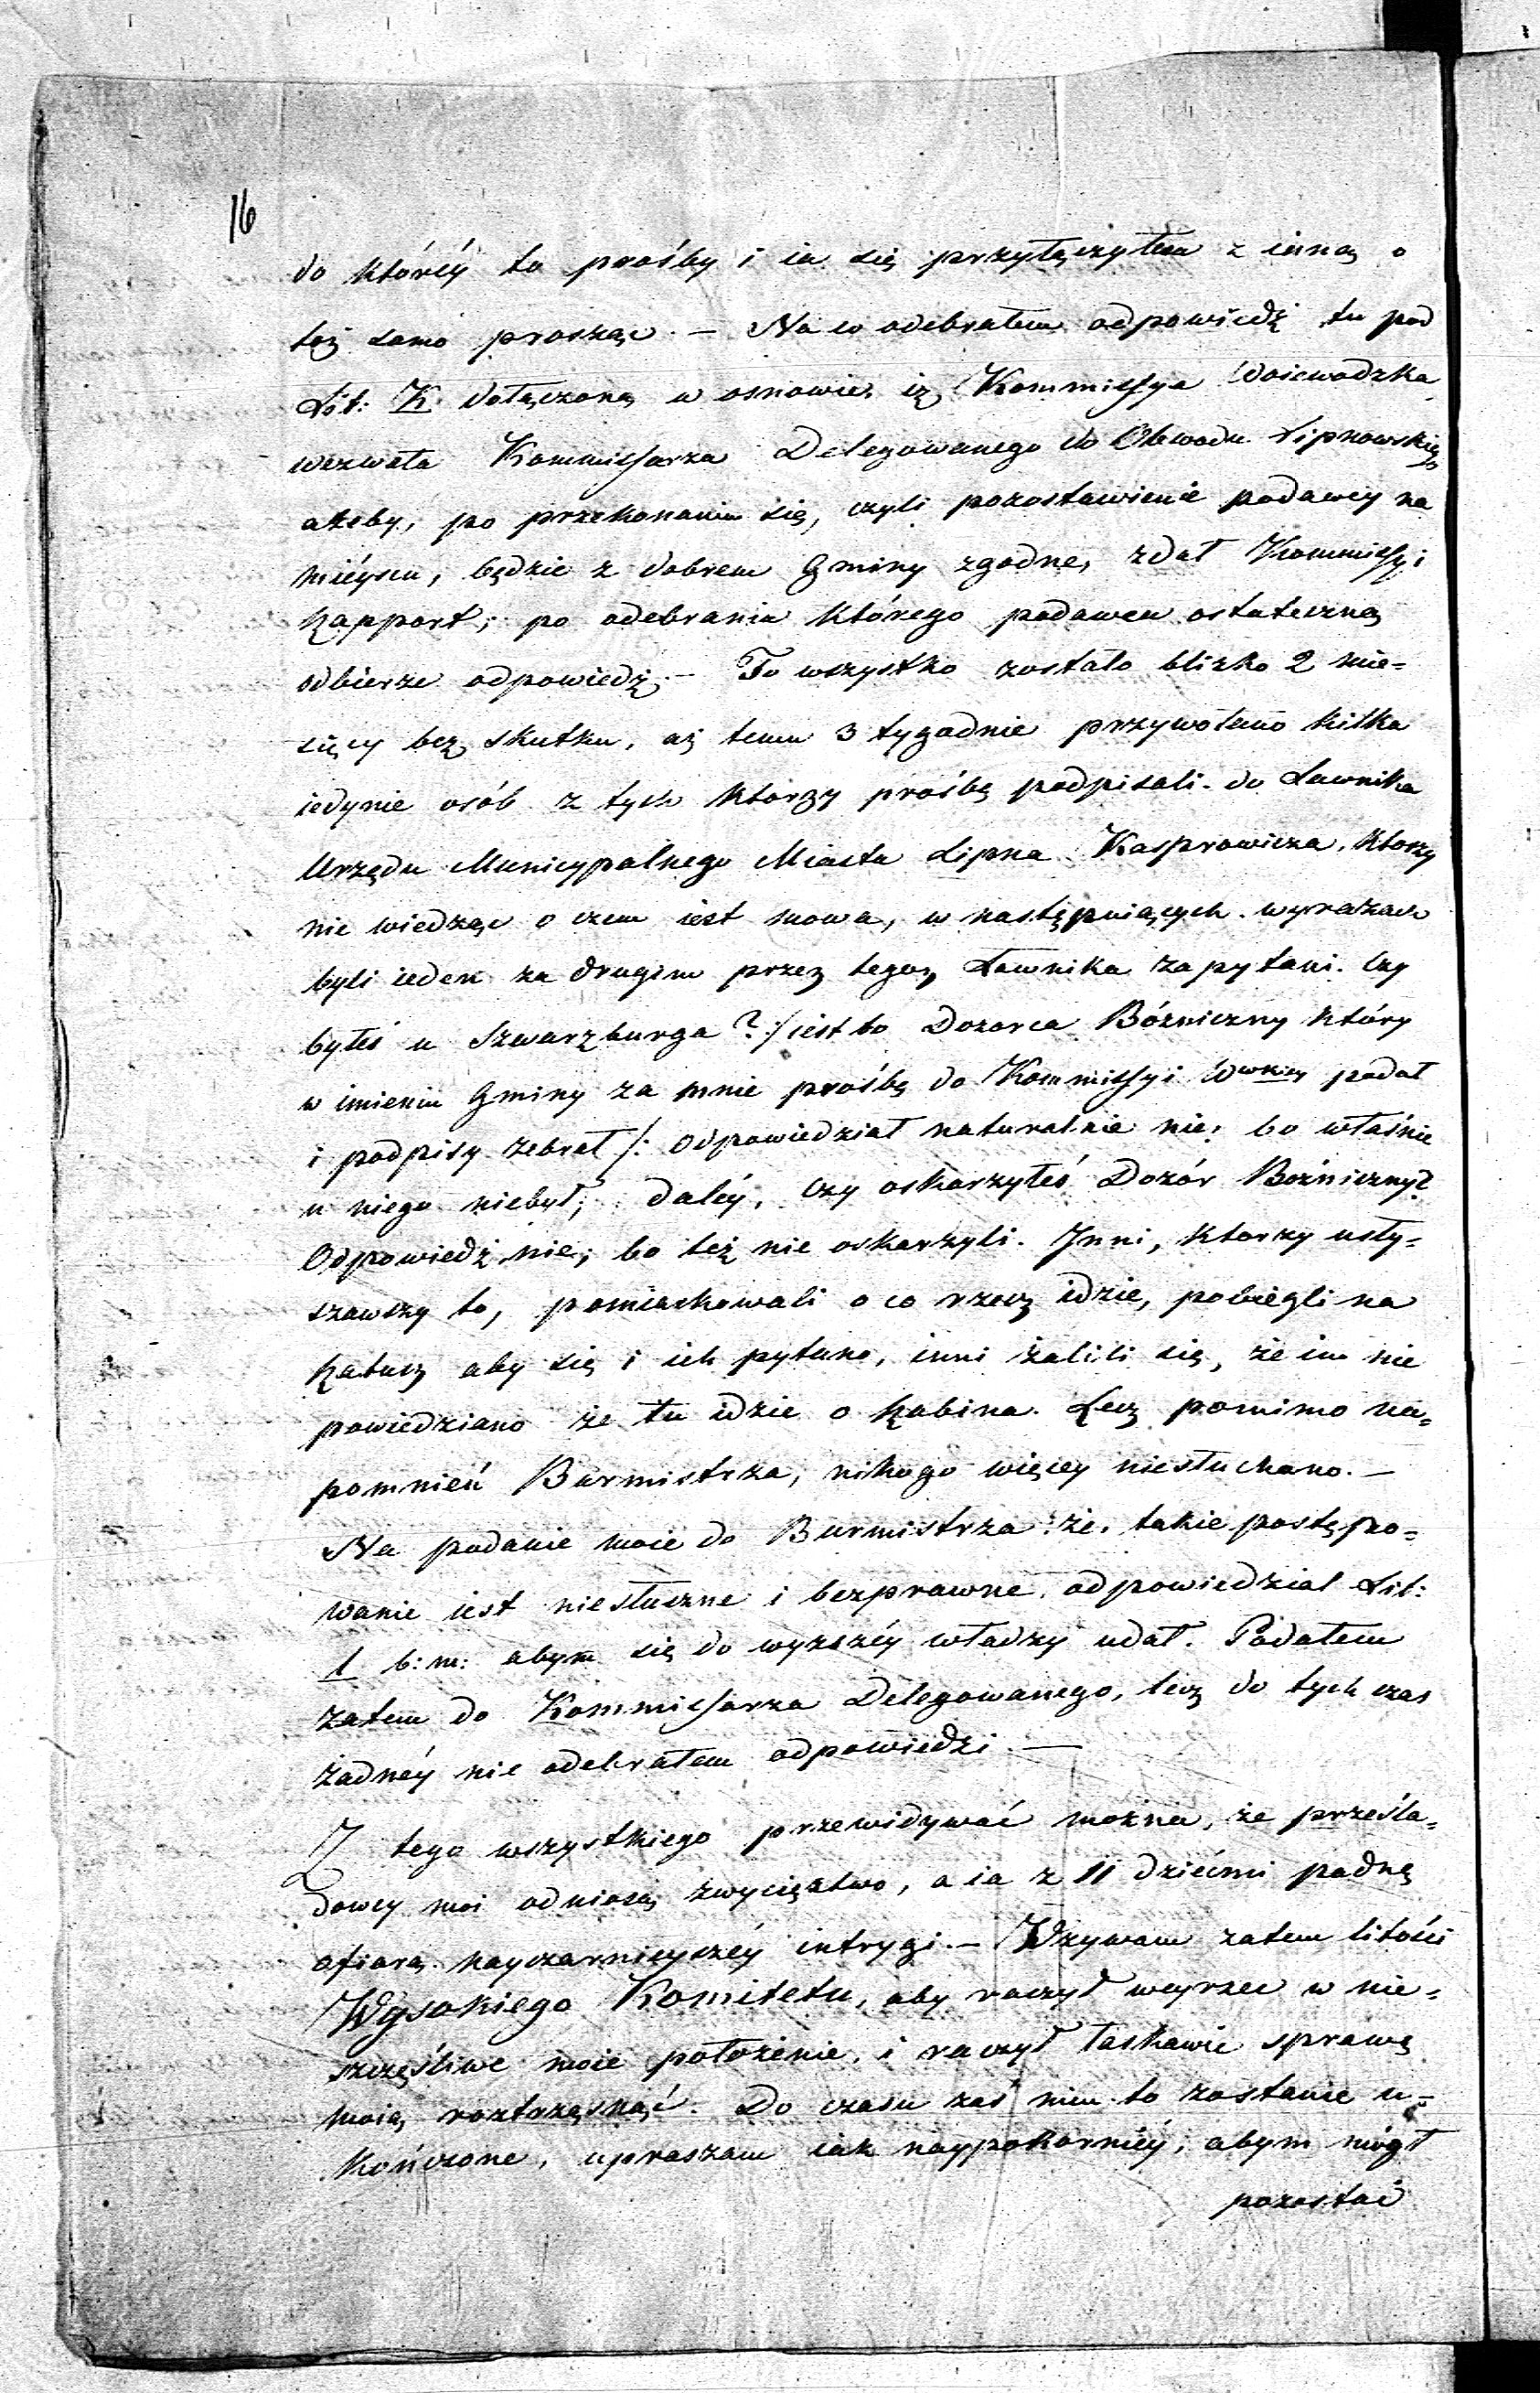 16
do któréy to prośby i ia się przyłączyłem z inną o
toż samo prosząc. — Na co odebrałem odpowiedź tu pod
Lit: K. dołączoną w osnowie, iż Kommissya Woiewodzka
wezwała Kommissarza Delegowanego do Obwodu Lipnowskiego
ażeby, po przekonaniu się, czyli pozostawienie podawcy na
mieyscu, będzie z dobrem Gminy zgodne, zdał Kommissyi
Rapport; po odebraniu którego podawca ostateczną
odbierze odpowiedź. — To wszystko zostało blizko 2 mie-
sięcy bez skutku, aż temu 3 tygodnie przywołano kilka
iedynie osób z tych którzy prośbę podpisali do Ławnika
Urzędu Municypalnego Miasta Lipna Kasprowicza, którzy
nie wiedząc o czem iest mowa, w następuiących wyrazach
byli ieden za drugim przez tegoż Ławnika zapytani. Czy
byłeś u Szwarzburga? :/ iest to Dozorca Bóżniczny który
w imieniu Gminy za mnie prośbę do Kommissyi Wwzkiey podał
i podpisy zebrał /: odpowiedział naturalnie nie; bo właśnie
u niego niebył; daléy, czy oskarzyłeś Dozór Bożniczny?
Odpowiedź nie; bo też nie oskarzyli. Inni, ktorzy usły-
szawszy to, pomiarkowali o co rzecz idzie, pobiegli na
Ratusz aby się i ich pytano, inni żalili się, że im nie
powiedziano że tu idzie o Rabina. Lecz pomimo na-
pomnień Burmistrza, nikogo więcey niesłuchano. —
Na podanie moie do Burmistrza: że, takie postępo-
wanie iest niesłuszne i bezprawne, odpowiedział Lit:
l b: m: abym się do wyzszéy władzy udał. Podałem
zatem do Kommissarza Delegowanego, lecz do tych czas
żadnéy nie odebrałem odpowiedzi. —
Z tego wszystkiego przewidywać można, że prześla-
dowcy moi odniosą zwycięztwo, a ia z 11 dziećmi padnę
ofiarą nayczarnieyszéy intrygi. — Wzywam zatem litości
Wysokiego Komitetu, aby raczył weyrzec w nie-
szczęśliwe moie położenie, i raczył łaskawie sprawę
moią roztrząsnąć. Do czasu zaś nim to zostanie u-
kończone, upraszam iak naypokorniéy, abym mógł
pozostać